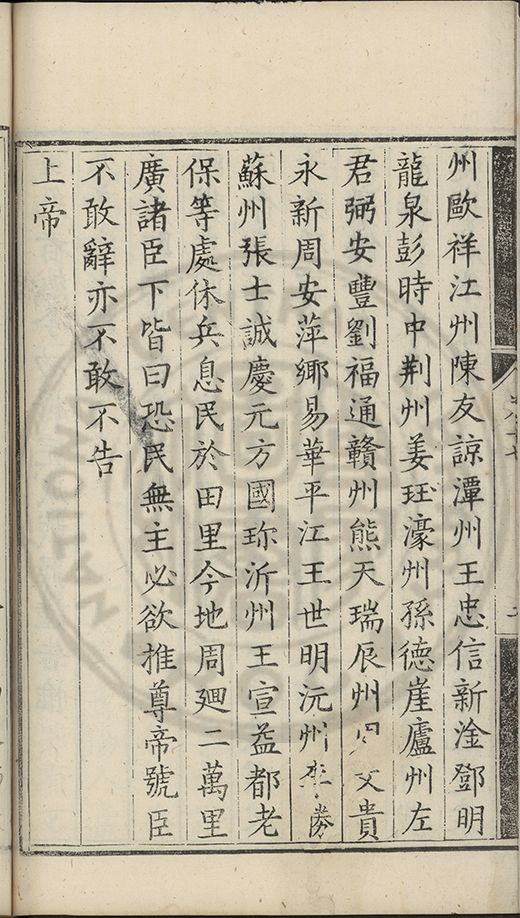 州歐祥江州陳友諒潭州王忠信新淦鄧明
龍泉彭時中荆州姜珏濠州孫德崖廬州左
君弼安豐劉福通贛州熊天瑞辰州周文貴
永新周安萍鄉易華平江王世明沅州李勝
蘇州張士誠慶元方國珍沂州王宣益都老
保等處休兵息民於田里今地周廻二萬里
廣諸臣下皆曰恐民無主必欲推尊帝號臣
不敢辭亦不敢不告
上帝